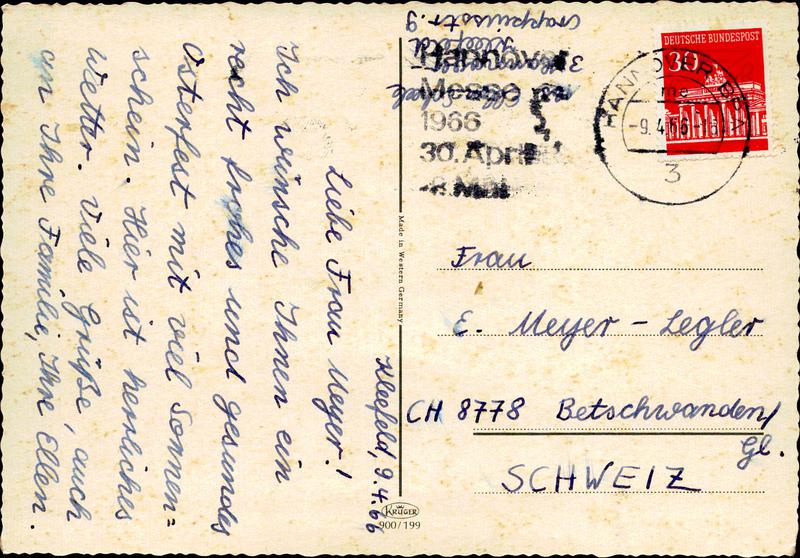 Kleefeld, 9.4.66
Liebe Frau Meyer!
Ich wünsche Ihnen ein
recht frohes und gesundes
Osterfest mit viel Sonnen=
schein. Hier ist herrliches
Wetter. Viele Grüße, auch
an Ihre Familie, Ihre Ellen.
Made in Western Germany
KRÜGER
900/199
3 Hannover
Kleefeld
Hannover
Messe
1966
30. April
8. Mai
DEUTSCHE BUNDESPOST
30
HANNOVER
-9.4.66-18
3
Frau
E. Meyer-Legler
CH 8778 Betschwanden/
Gl.
SCHWEIZ